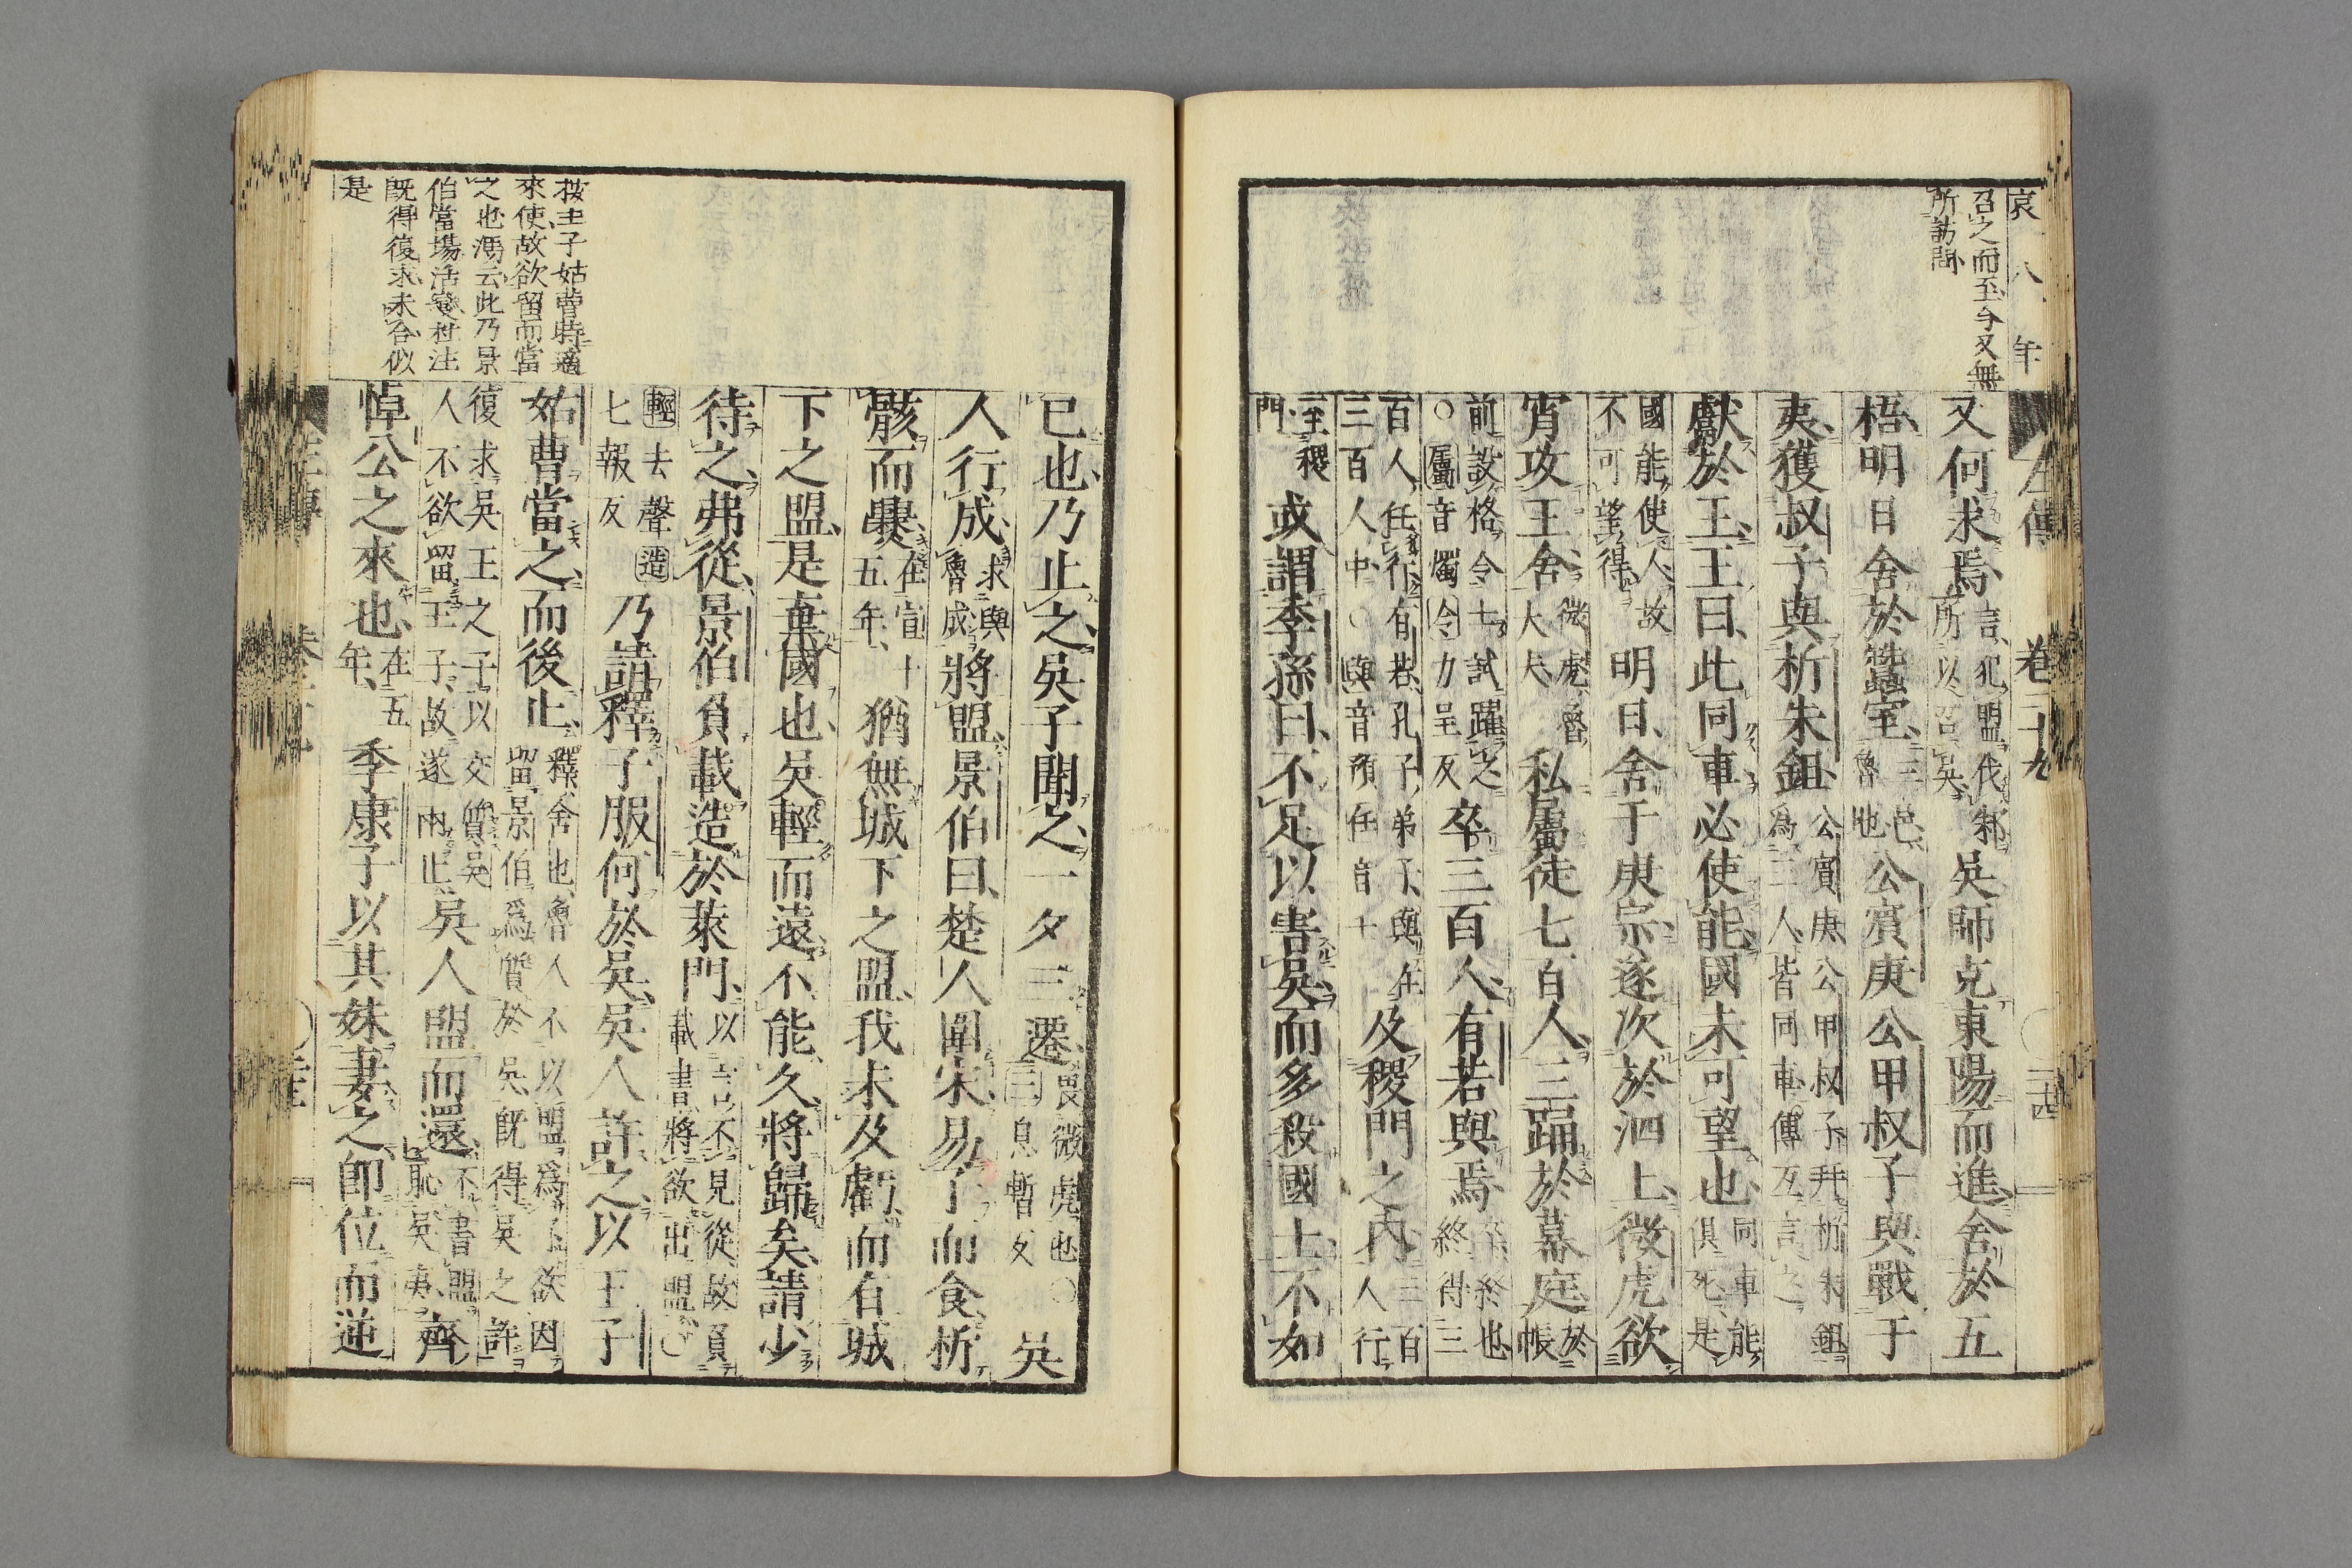 哀八年
左傳 卷二十九 二十四
召之而至今又無
所訪問
又何求焉言犯盟伐邾所以召吳吳師克東陽而進舍於五
梧明日舍於蠶室三邑魯地公賓庚公甲叔子與戰于
夷獲叔子與析朱鉏公賓庚公甲叔子幷析朱鉏爲三人皆同車傳互言之
獻於王王曰此同車必使能國未可望也同車能俱死是
國能使人故不可望得明日舍于庚宗遂次於泗上微虎欲
宵攻王舍微虎魯大夫私屬徒七百人三踊於幕庭於帳
前設格令士試躍之○屬音燭令力呈反卒三百人有若與焉卒終也終得三
百人任行有若孔子弟子與在三百人中○與音預任音壬及稷門之內三百人行
至稷門或謂季孫曰不足以害吳而多殺國士不如
已也乃止之吳子聞之一夕三遷畏微虎也○三息暫反吳
人行成求與魯成將盟景伯曰楚人圍宋易子而食析
骸而爨在宣十五年猶無城下之盟我未及虧而有城
下之盟是棄國也吳輕而遠不能久將歸矣請少
待之弗從景伯負載造於萊門以言不見從故負載書將欲出盟○
輕去聲造七報反乃請釋子服何於吳吳人許之以王子
姑曹當之而後止釋舍也魯人不以盟爲了欲因留景伯爲質於吳旣得吳之許
復求吳王之子以交質吳人不欲留王子故遂兩止吳人盟而還不書盟恥吳夷齊
悼公之來也在五年季康子以其妹妻之卽位而逆
按王子姑曹時適
來使故欲留而當
之也馮云此乃景
伯當場活變杜注
旣得復求未合似
是